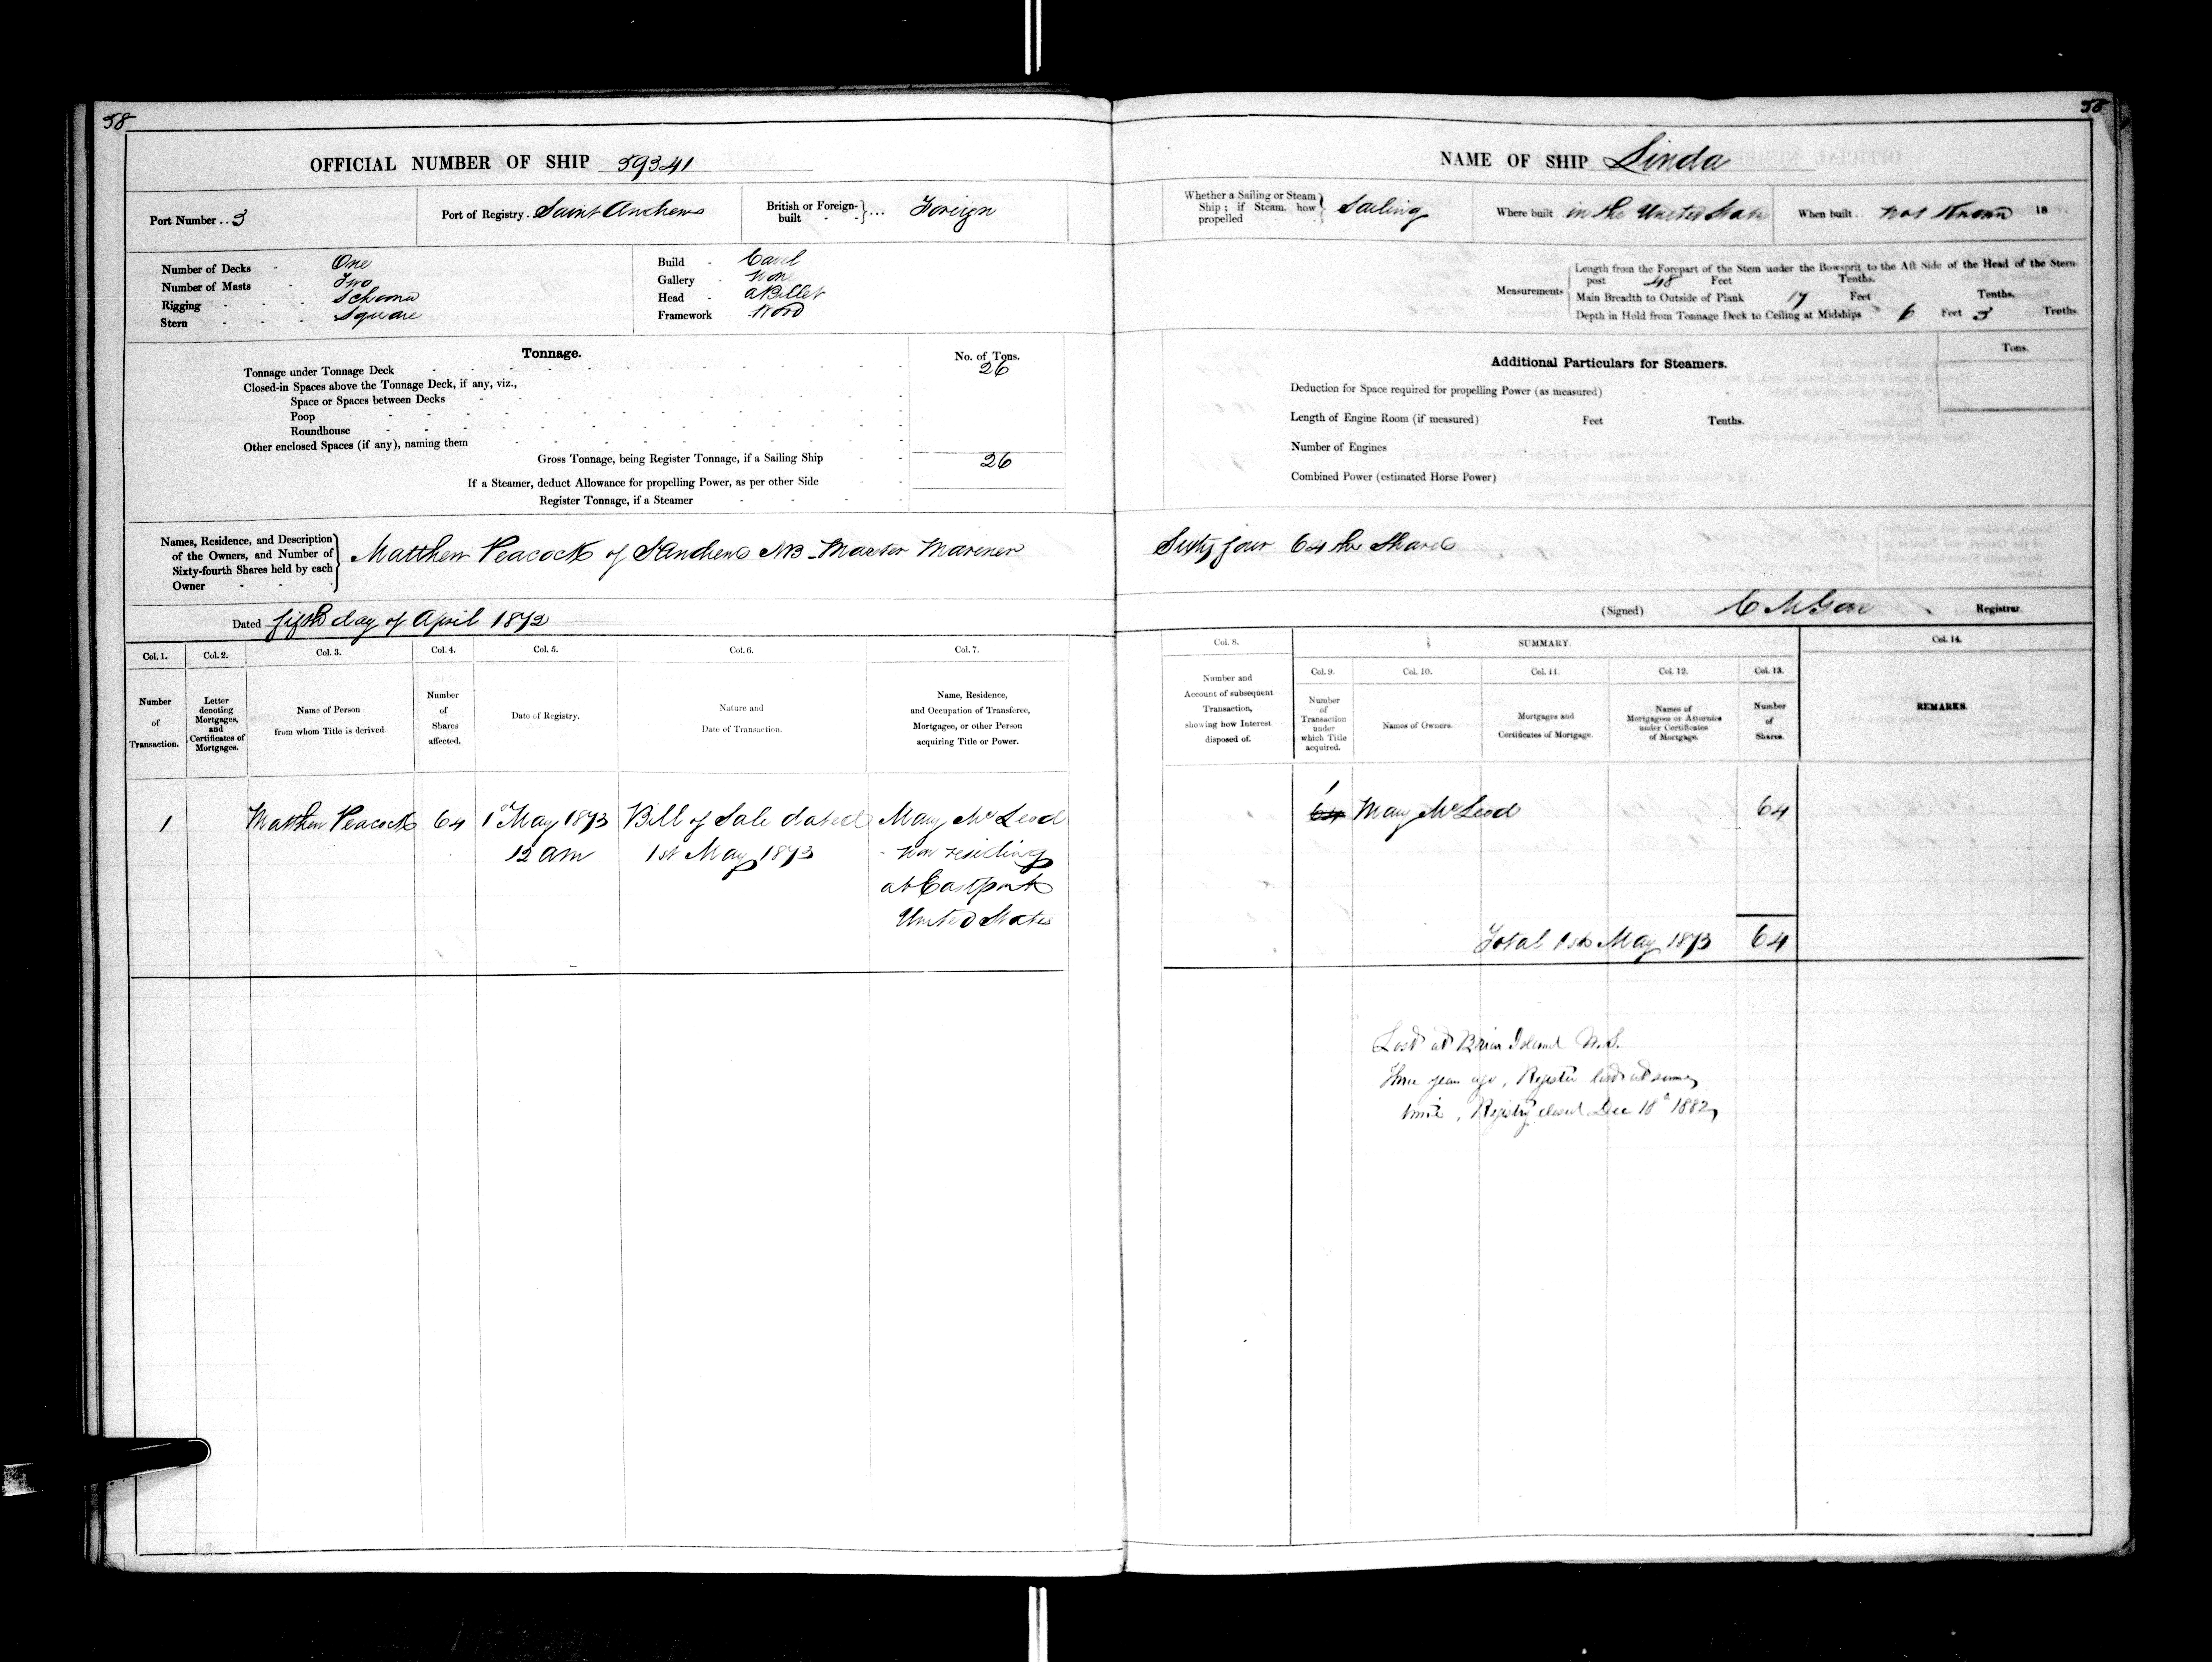 58
OFFICIAL NUMBER OF SHIP 59341
Port Number .. 3
Port of Registry . Saint Andrews
British or Foreign-built - - }... Foreign
Number of Decks - One
Number of Masts - Two
Rigging - - - Schooner
Stern - - - Square
Build - Carvel
Gallery - None
Head - a Billet
Framework Wood
Tonnage.
No. of Tons.
Tonnage under Tonnage Deck 26
Closed-in Spaces above the Tonnage Deck, if any, viz.,
Space or Spaces between Decks
Poop
Roundhouse
Other enclosed Spaces (if any), naming them
Gross Tonnage, being Register Tonnage, if a Sailing Ship 26
If a Steamer, deduct Allowance for propelling Power, as per other Side
Register Tonnage, if a Steamer
Names, Residence, and Description
of the Owners, and Number of
Sixty-fourth Shares held by each
Owner
Matthew Peacock of St Andrews NB - Master Mariner
Dated fifth day of April 1872
Col. 1. Col. 2. Col. 3. Col. 4. Col. 5. Col. 6. Col. 7.
Number of Transaction.
Letter denoting Mortgages, and Certificates of Mortgages.
Name of Person from whom Title is derived
Number of Shares affected.
Date of Registry.
Nature and Date of Transaction.
Name, Residence, and Occupation of Transferee, Mortgagee, or other Person acquiring Title or Power.
1 Matthew Peacock 64 1st May 1873 Bill of Sale dated Mary McLeod
12 am 1st May 1873 - now residing
at Eastport
United States
58
NAME OF SHIP Linda
Whether a Sailing or Steam Ship ; if Steam, how propelled } Sailing
Where built in the United States
When built .. not Known 18
Measurements
Length from the Forepart of the Stem under the Bowsprit to the Aft Side of the Head of the Stern-
post 48 Feet Tenths.
Main Breadth to Outside of Plank 17 Feet Tenths.
Depth in Hold from Tonnage Deck to Ceiling at Midships 6 Feet 3 Tenths.
Additional Particulars for Steamers.
Tons.
Deduction for Space required for propelling Power (as measured)
Length of Engine Room (if measured) Feet Tenths.
Number of Engines
Combined Power (estimated Horse Power)
Sixty four 64ths Shares
(Signed) C M Gove Registrar.
Col. 8. SUMMARY. Col. 14.
Col. 9. Col. 10. Col. 11. Col. 12. Col. 13.
Number and Account of subsequent Transaction, showing how Interest disposed of.
Number of Transaction under which Title acquired.
Names of Owners.
Mortgages and Certificates of Mortgage.
Names of Mortgagees or Attornies under Certificates of Mortgage.
Number of Shares.
REMARKS.
1
64 Mary McLeod 64
Total 1st May 1873 64
Lost at Briar Island N.S.
Three years ago, Register lost at same
time, Registry closed Dec 18th 1882